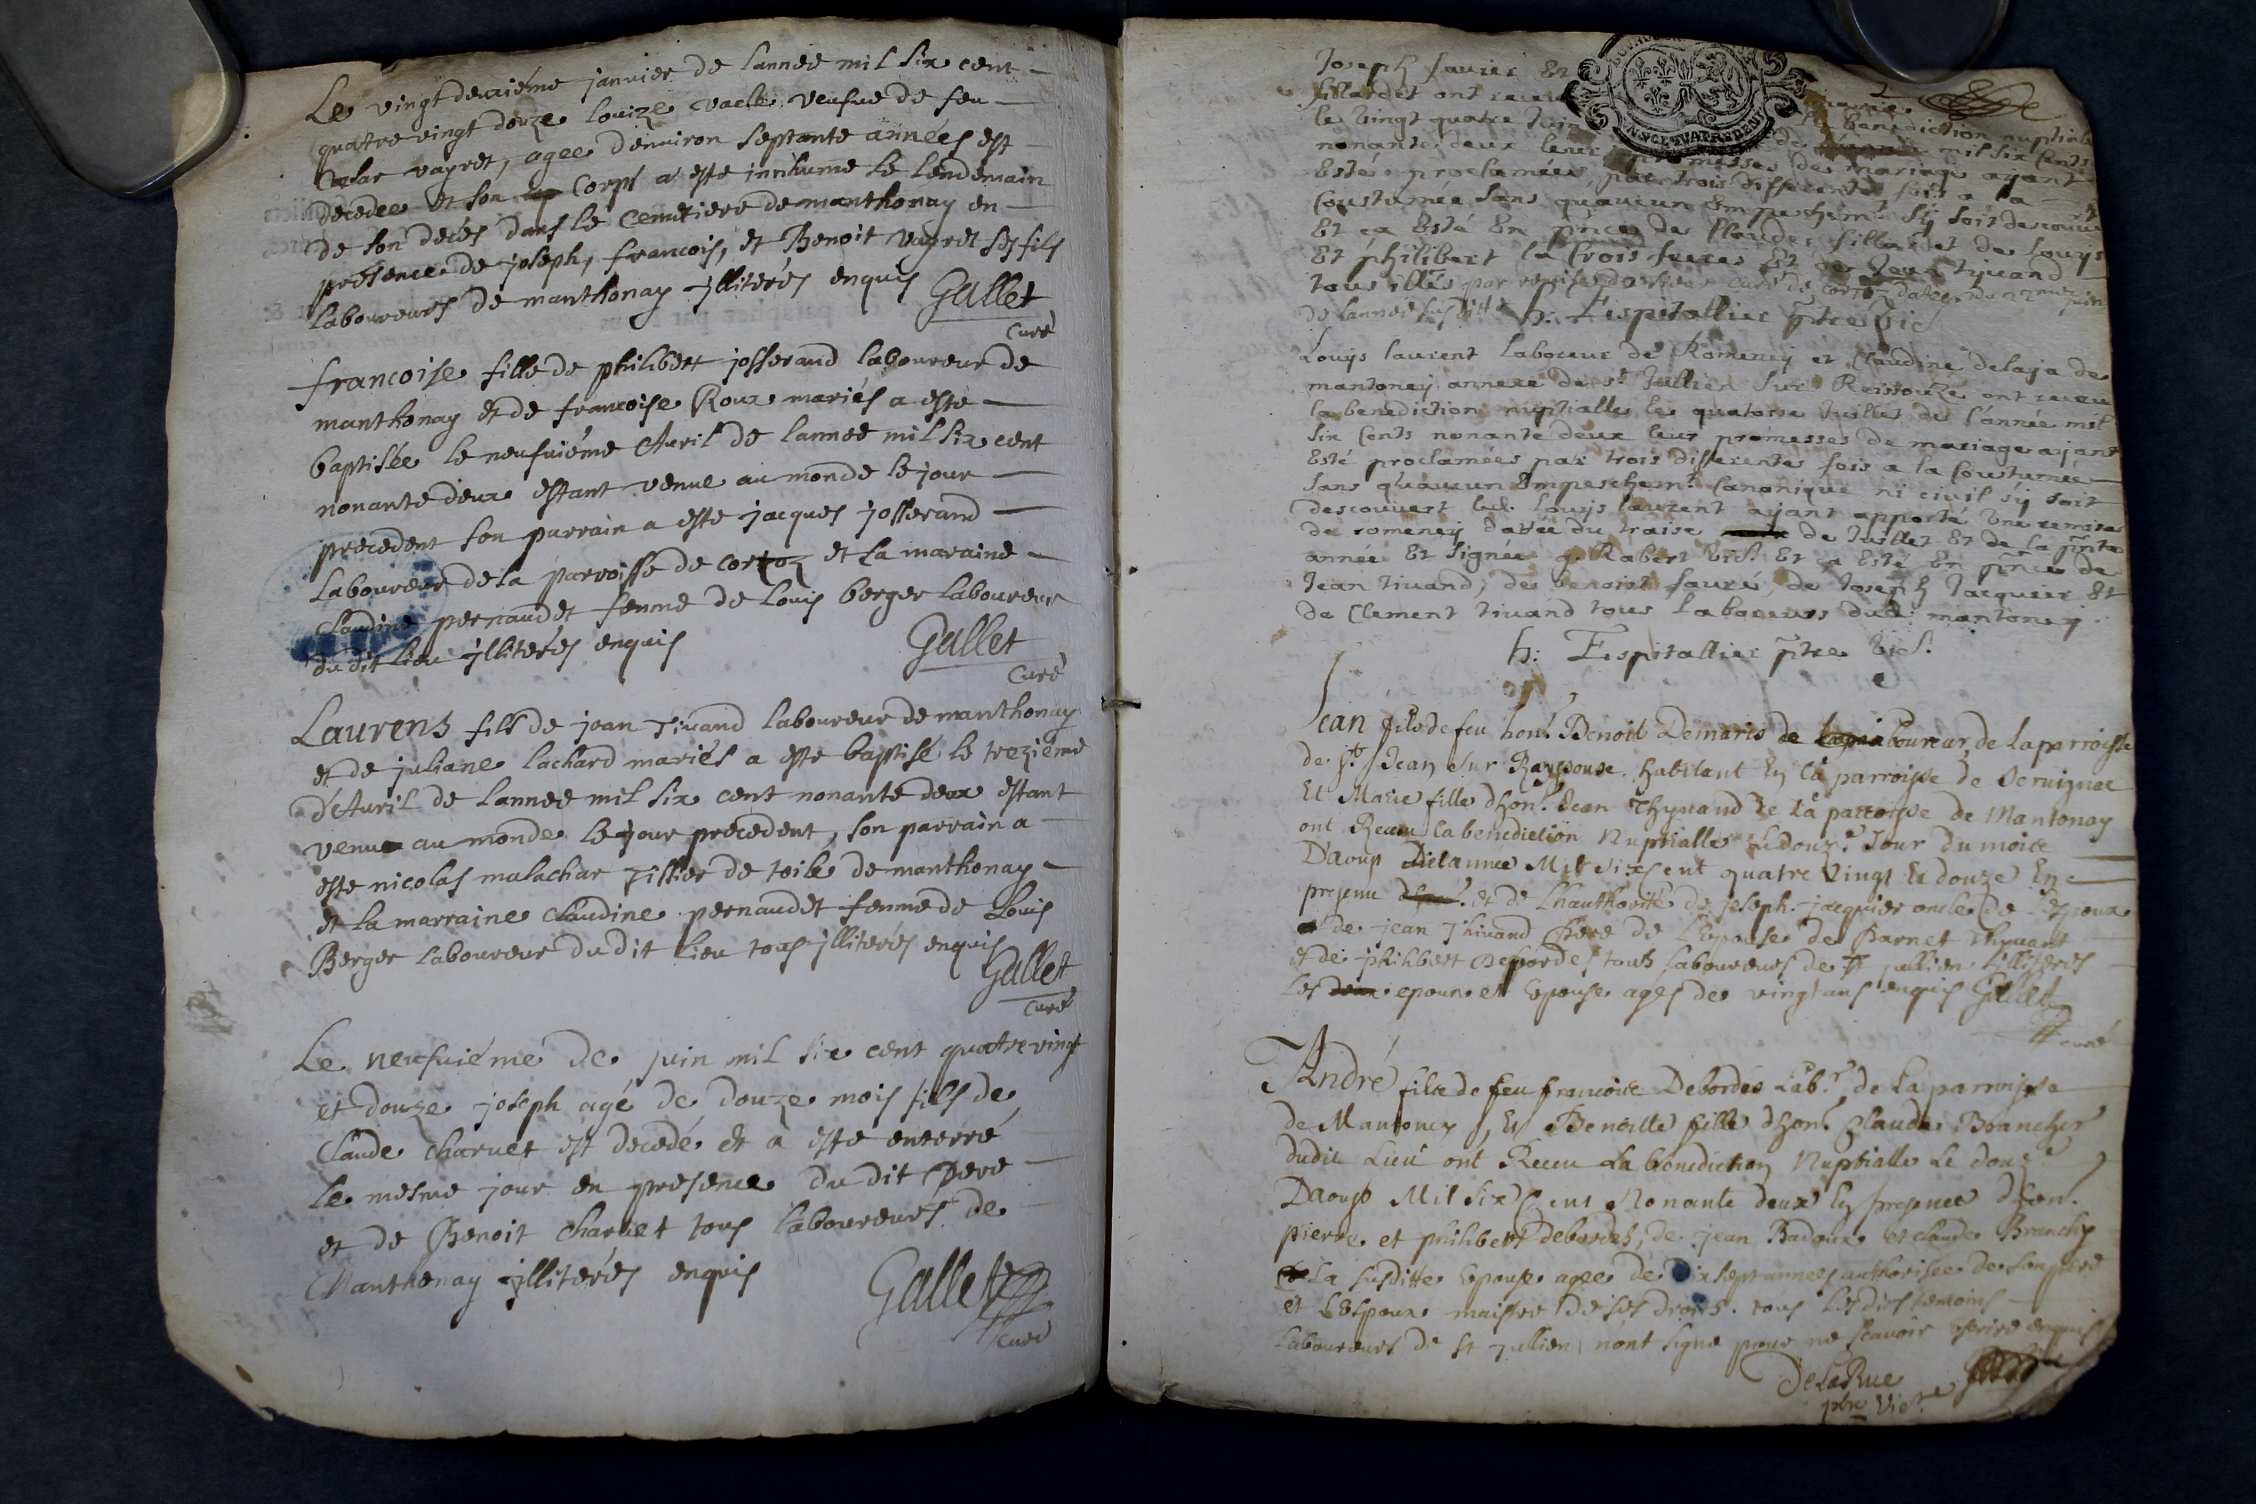 Le vingt deuxiéme janvier de lannee mil six cent
quatre vingt douze louize vacle veufue de feu
vayret, agee denuiron septante années est
decedee et son corps a este innhumé le lendemain
de son decés dans le cemetiere de manthonay en
presence de joseph, francois, et Benoit vayret ses fils
laboureurs de manthonay jlliterés enquis Gallet
curé
francoise fille de philibert josserand laboureur de
manthonay et de francoise Roux mariés a este
baptisée le neufuiéme Auril de lannee mil six cent
nonante deux estant venue au monde le jour
precedent son parrain a este jacques josserand
laboureur de la parroisse de cortoz et la maraine
claudine pernaudet femme de Louis berger laboureur
du dit lieu jlliterés enquis Gallet
curé
Laurens fils de jean Tiuand laboureur de manthonay
et de juliane lachard mariés a este baptisé le trezieme
d'Auril de lannee mil six cent nonante deux estant
venu au monde le jour precedent, son parrain a
este nicolas malachar Tissier de toile de manthonay
et la marraine claudine pernaudet femme de Louis
Berger laboureur du dit lieu tous jlliterés enquis
Gallet
curé
Le neufuiéme de juin mil six cent quatre vingt
et douze joseph agé de douze mois fils de
Claude charuet est decedé et a este enterré
le mesme jour en presence du dit pere
et de Benoit charuet tous laboureurs de
Manthonay jlliterés enquis Gallet
curé
Joseph fauier Et
fillardet ont receu benediction nuptiale
le vingt quatre Juin de mil six Cents
nonante deux leurs promesses de mariage ayant
Esté proclamées par trois differentes fois a la
Coustumée sans quaucun Empeschemt sy soit descouuert
Et ca Esté En pñce de Claude fillardet de Louys
Et philibert la Crois freres Et de Jean tiuand
tous illes par remise du sieur curé de cortoz datee du 22me juin
de lannee susditte h: Espitallier ptre vic
Louys laurent laboreur de Romeney et Claudine delaja de
mantoney annexe de st Jullien sur Reissouze ont receu
la benediction nuptialle le quatorse Juillet de l'année mil
six Cents nonante deux leur promesses de mariage ayant
Esté proclamées par trois differentes fois a la Coustumée
sans quaucun Empeschemt Canonique ni ciuil sy soit
descouuert led. Louys laurent ayant apporté Une remise
de romeney dattée du traise de Juillet Et de la pñte
année Et signée Rabert vic. Et ca Esté En pñce de
Jean tiuand, de benoist fauré, de Joseph Jacquier Et
de Clement tiuand tous laboreurs dud. mantoney.
h: Espitallier ptre vic.
Jean fils de feu hont Benoit Demaris de laboureur de la parroisse
de st Jean sur Rayssouse habitant En la parroisse de Seruignat
Et Marie fille dhont Jean Thyuand de la parroisse de Mantonay
ont Receu la benediction Nuptialle le douze Jour du mois
D'aoust De lannee Mil six Cent quatre Vingt Et douze En
presence et de Lhauthorité de joseph jacquier oncle de L'Epoux
de jean Thiuand Pere de L'Epouse de Parnet Thyuant
et de philibert Debordes touts laboureurs de st jullien jlliterés
Les epoux et Epouse ages de vingt ans enquis Gallet
curé
André fils de feu francois Debordes Labr. de la parroisse
de Mantoney, Et Benoitte fille dhont Claude Branchy
dudit Lieu ont Receu La benediction Nuptialle Le douze
Daoust Mil six Cens Nonante deux En presence dhont
pierre et philibert debordes, de jean Badoux et claude Branchy
La susditte Epouse agee de dix sept annees authorisee de son pere
et L'Espoux maistre de ses droits. tous lesdits temoins
laboureurs de st jullien, nont signé pour ne scauoir escrire enquis
DeLaRue
ptre Vic.re